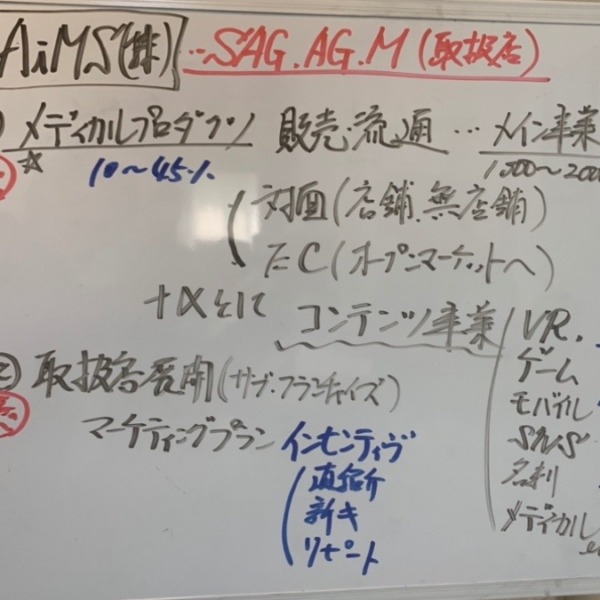 AiMS(株) … SAG. AG. M (取扱店)
メディカルプロダクツ 販売・流通 … メイン事業
☆ 10〜45% 1000〜2000
対面(店舗、無店舗)
EC(オープンマーケットへ)
+αとして コンテンツ事業 VR.
② 取扱店展開(サブ・フランチャイズ) ゲーム
マーケティングプラン インセンティヴ モバイル
SNS
直紹介 名刺
新キ メディカル
リピート